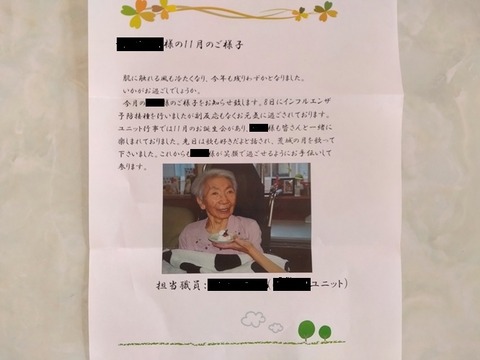 様の11月のご様子
肌に触れる風も冷たくなり、今年も残りわずかとなりました。
いかがお過ごしでしょうか。
今月の様のご様子をお知らせ致します。8日にインフルエンザ
予防接種を行いましたが副反応もなくお元気に過ごされております。
ユニット行事では11月のお誕生会があり、様も皆さんと一緒に
楽しまれておりました。先日は歌も好きだよと話され、荒城の月を歌って
下さいました。これからも様が笑顔で過ごせるようにお手伝いして
参ります。
担当職員：（ユニット）